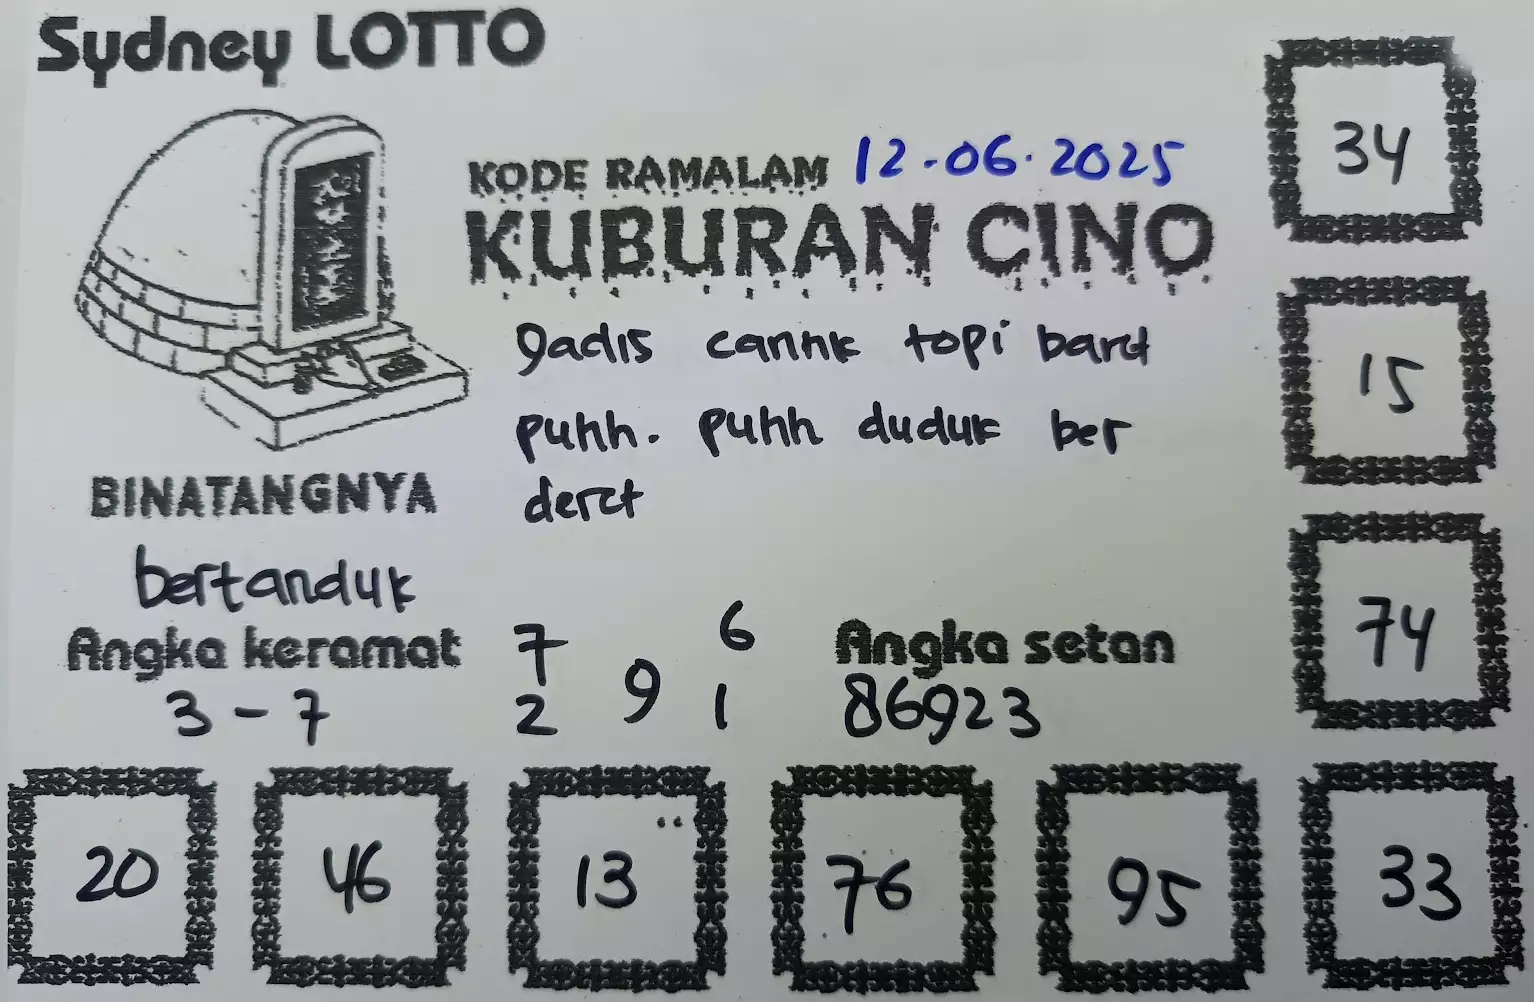 Sydney LOTTO
34
KODE RAMALAM 12-06-2025
KUBURAN CINO
gadis cannk topi bard
15
puhh. puhh duduk ber
deret
BINATANGNYA
bertanduk
74
Angka keramat
3-7
7 6
9
2 1
Angka setan
86923
20 46 13 76 95 33